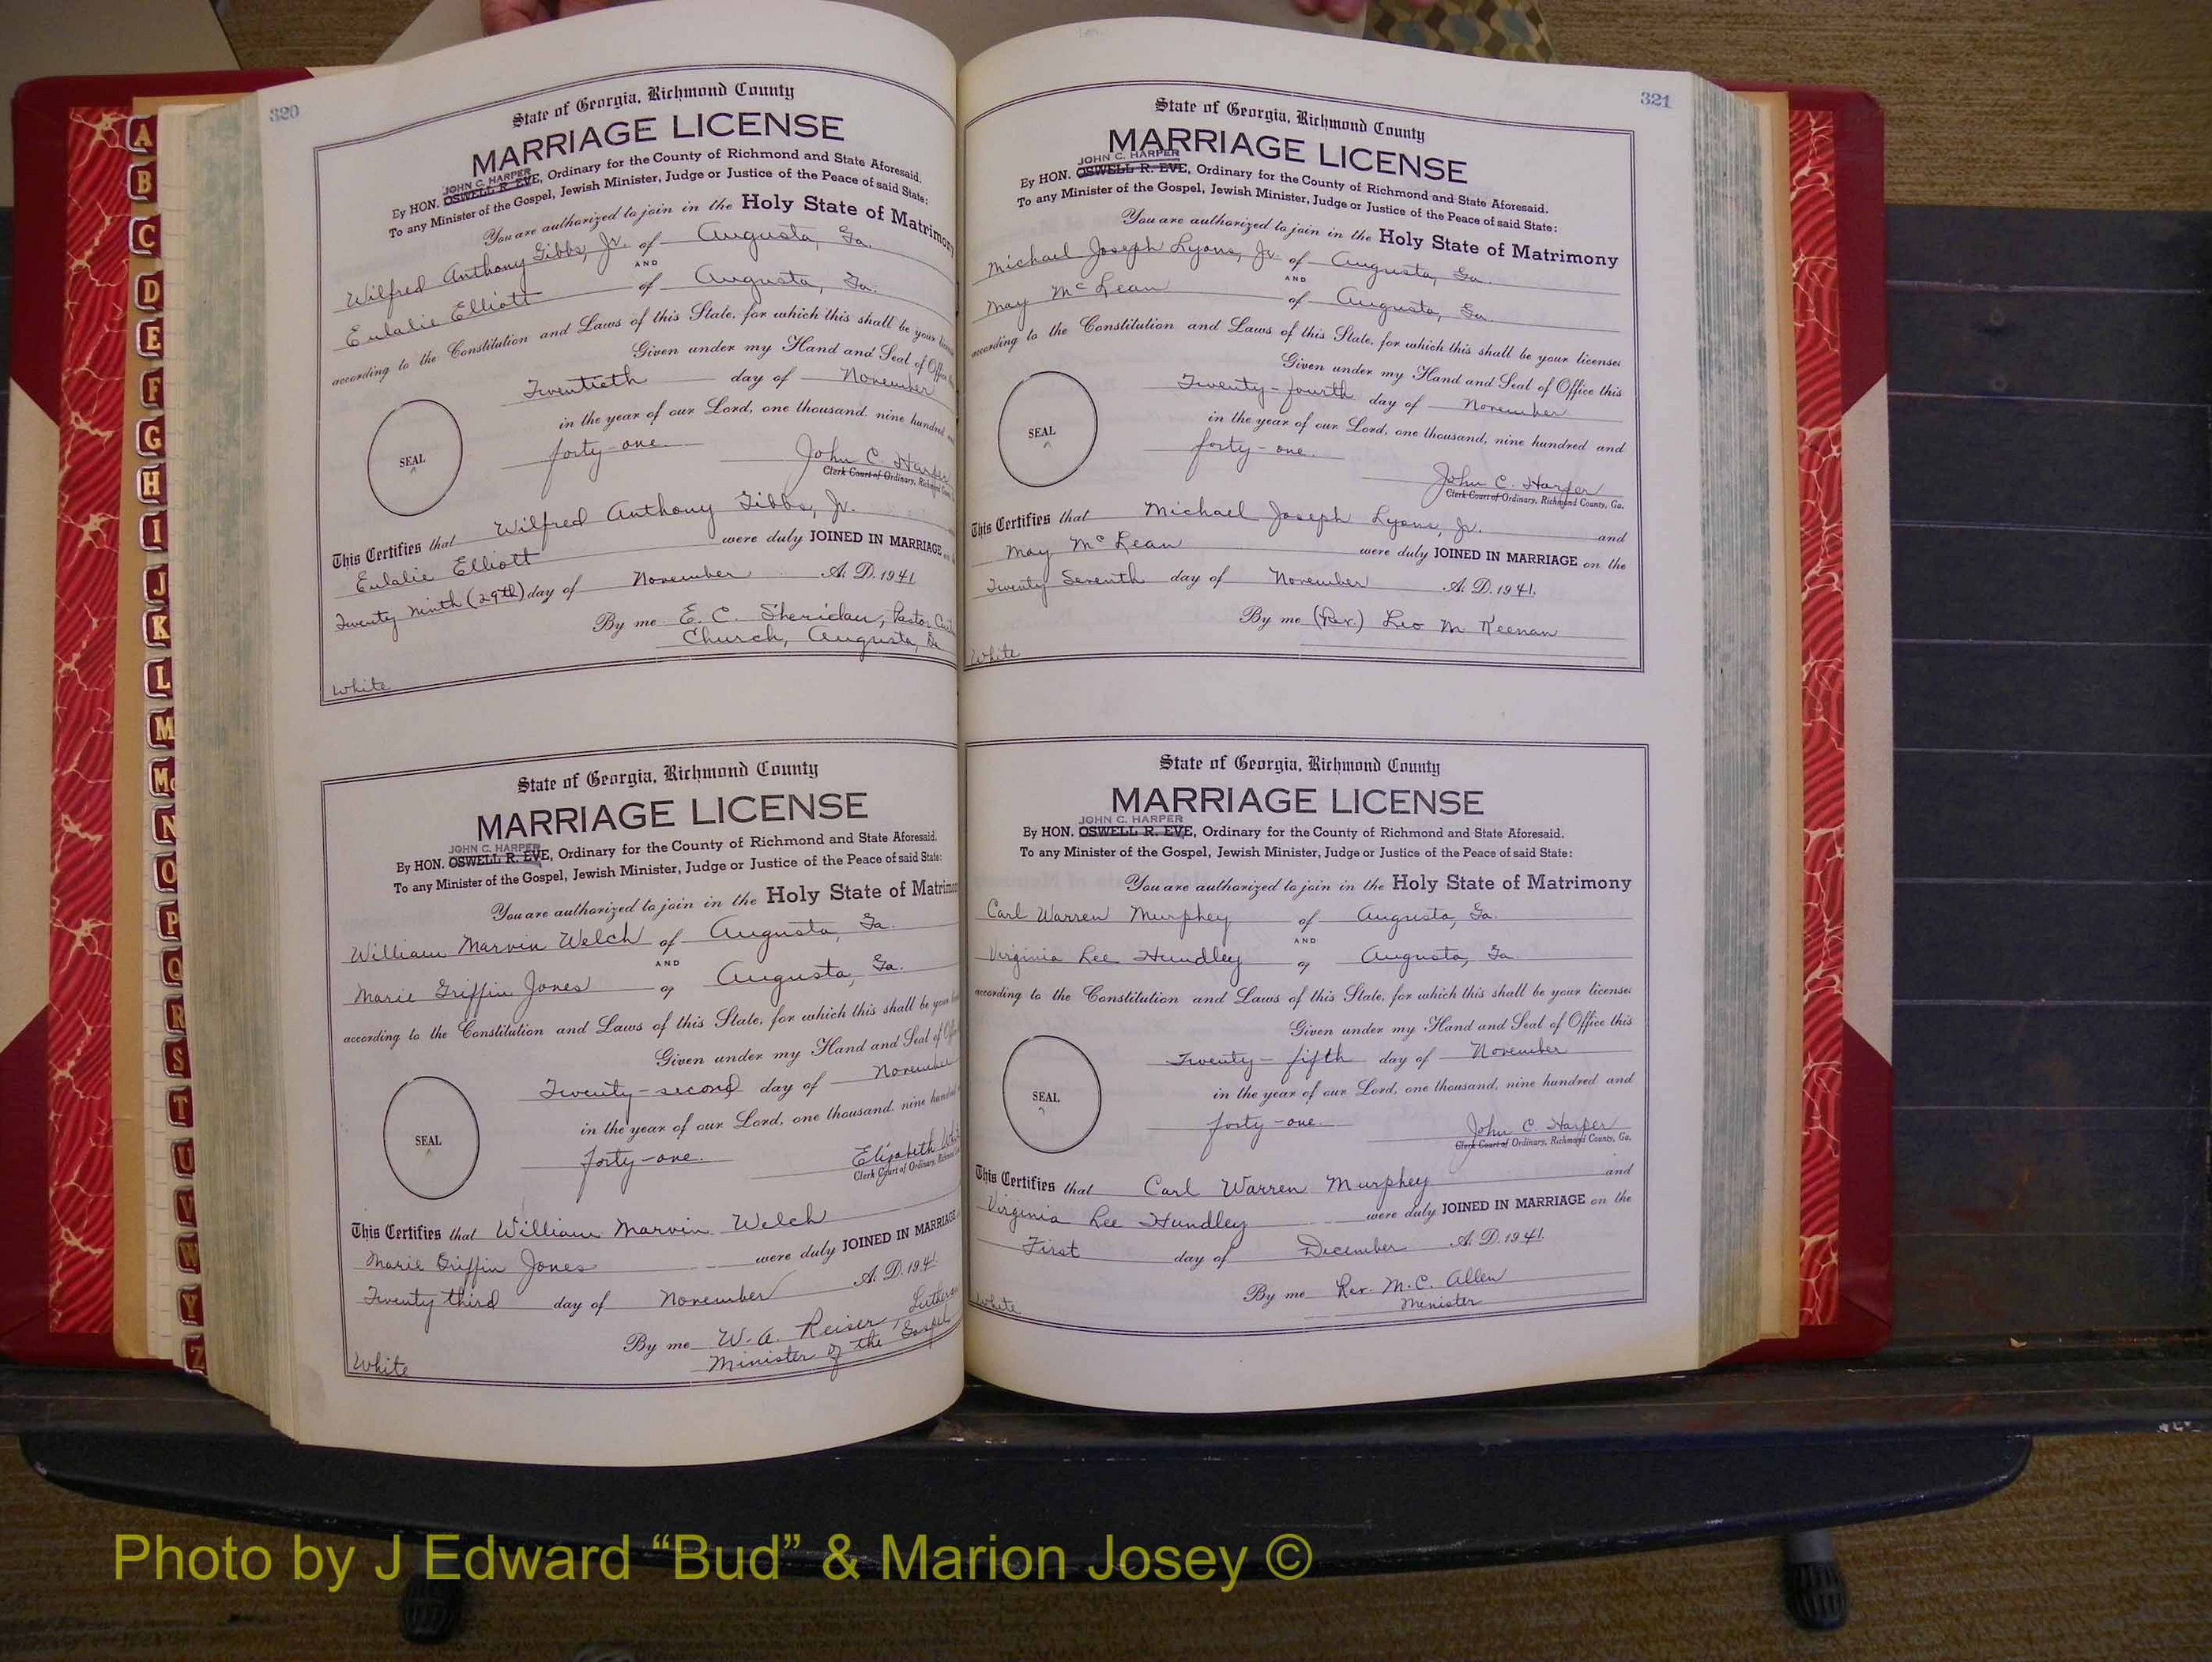 320
State of Georgia, Richmond County
MARRIAGE LICENSE
JOHN C. HARPER
By HON. OSWELL R. EVE, Ordinary for the County of Richmond and State Aforesaid.
To any Minister of the Gospel, Jewish Minister, Judge or Justice of the Peace of said State:
You are authorized to join in the Holy State of Matrimony
Wilfred Anthony Gibbs, Jr. of Augusta, Ga.
AND
Eulalie Elliott of Augusta, Ga.
according to the Constitution and Laws of this State, for which this shall be your
Given under my Hand and Seal of
Twentieth day of November
in the year of our Lord, one thousand, nine hundred
forty-one
SEAL
John C. Harper
Clerk Court of Ordinary,
This Certifies that Wilfred Anthony Gibbs, Jr.
Eulalie Elliott were duly JOINED IN MARRIAGE
Twenty ninth (29th) day of November A. D. 1941
By me E. C. Sheridan, Pastor
Church, Augusta, Ga
White
State of Georgia, Richmond County
MARRIAGE LICENSE
JOHN C. HARPER
By HON. OSWELL R. EVE, Ordinary for the County of Richmond and State Aforesaid.
To any Minister of the Gospel, Jewish Minister, Judge or Justice of the Peace of said State:
You are authorized to join in the Holy State of
William Marvin Welch of Augusta, Ga.
AND
Marie Griffin Jones of Augusta, Ga.
according to the Constitution and Laws of this State, for which this shall be your
Given under my Hand and Seal of
Twenty-second day of November
in the year of our Lord, one thousand, nine
forty-one.
SEAL
Elizabeth
Clerk Court of Ordinary,
This Certifies that William Marvin Welch
Marie Griffin Jones were duly JOINED IN MARRIAGE
Twenty third day of November A. D. 194
By me W. A. Reiser, Lutheran
Minister of the Gospel
White
321
State of Georgia, Richmond County
MARRIAGE LICENSE
JOHN C. HARPER
By HON. OSWELL R. EVE, Ordinary for the County of Richmond and State Aforesaid.
To any Minister of the Gospel, Jewish Minister, Judge or Justice of the Peace of said State:
You are authorized to join in the Holy State of Matrimony
Michael Joseph Lyons, Jr. of Augusta, Ga.
AND
May McLean of Augusta, Ga.
according to the Constitution and Laws of this State, for which this shall be your license:
Given under my Hand and Seal of Office this
Twenty-fourth day of November
in the year of our Lord, one thousand, nine hundred and
forty-one.
SEAL
John C. Harper
Clerk Court of Ordinary, Richmond County, Ga.
This Certifies that Michael Joseph Lyons, Jr. and
May McLean were duly JOINED IN MARRIAGE on the
Twenty Seventh day of November A. D. 1941.
By me (Rev.) Leo M Keenan
White
State of Georgia, Richmond County
MARRIAGE LICENSE
JOHN C. HARPER
By HON. OSWELL R. EVE, Ordinary for the County of Richmond and State Aforesaid.
To any Minister of the Gospel, Jewish Minister, Judge or Justice of the Peace of said State:
You are authorized to join in the Holy State of Matrimony
Carl Warren Murphey of Augusta, Ga.
AND
Virginia Lee Hundley of Augusta, Ga.
according to the Constitution and Laws of this State, for which this shall be your license:
Given under my Hand and Seal of Office this
Twenty-fifth day of November
in the year of our Lord, one thousand, nine hundred and
forty-one.
SEAL
John C. Harper
Clerk Court of Ordinary, Richmond County, Ga.
This Certifies that Carl Warren Murphey and
Virginia Lee Hundley were duly JOINED IN MARRIAGE on the
First day of December A. D. 1941.
By me Rev. M. C. Allen
Minister
White
A
B
C
D
E
F
G
H
I
J
K
L
M
Mc
N
O
P
Q
R
S
T
U
V
W
Y
Z
Photo by J Edward “Bud” & Marion Josey ©